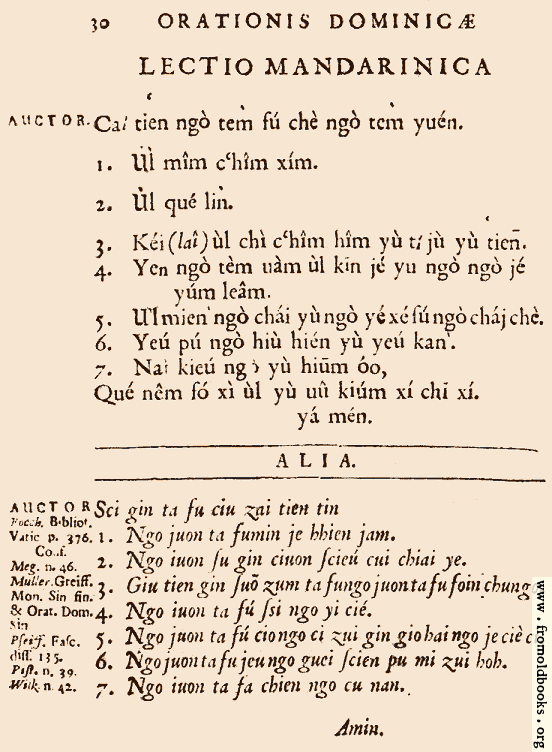 30 ORATIONIS DOMINICÆ
LECTIO MANDARINICA
AUCTOR. Caí tien ngò tem̀ fú chè ngò tem̀ yuén.
1. Ùl mîm c'hîm xím.
2. Ùl qué liǹ.
3. Kéi (laî) ùl chì c'hîm hîm yù tí jù yù tien̄.
4. Yen ngò tèm uàm ùl kīn jé yu ngò ngò jé
yúm leâm.
5. Ùl mien ngò chái yù ngò yé xé fú ngò cháj chè.
6. Yeú pú ngò hiù hién yù yeú kan.
7. Nai kieú ngò yù hiūm óo,
Qué nêm fó xì ùl yù uû kiúm xí chī xí.
yá mén.
ALIA.
AUCTOR Sci gin ta fu ciu zai tien tin
Rocch. Bibliot.
Vatic p. 376. 1. Ngo juon ta fumin je hhien jam.
Conf.
Meg. n. 46. 2. Ngo iuon ſu gin ciuon ſcieú cui chiai ye.
Muller. Greiff. 3. Giu tien gin ſuō zum ta fungo juon ta fu foin chung
Mon. Sin fin.
& Orat. Dom. 4. Ngo iuon ta fú ſsi ngo yi cié.
Sin
Pfeiff. Faſc. 5. Ngo juon ta fú ciongo ci zui gin gio hai ngo je ciè c
diff. 135.
Piſt. n. 39. 6. Ngo juon ta fu jeu ngo guei ſcien pu mi zui hoh.
Wilk. n. 42. 7. Ngo iuon ta fa chien ngo cu nan.
Amin.
www.fromoldbooks.org